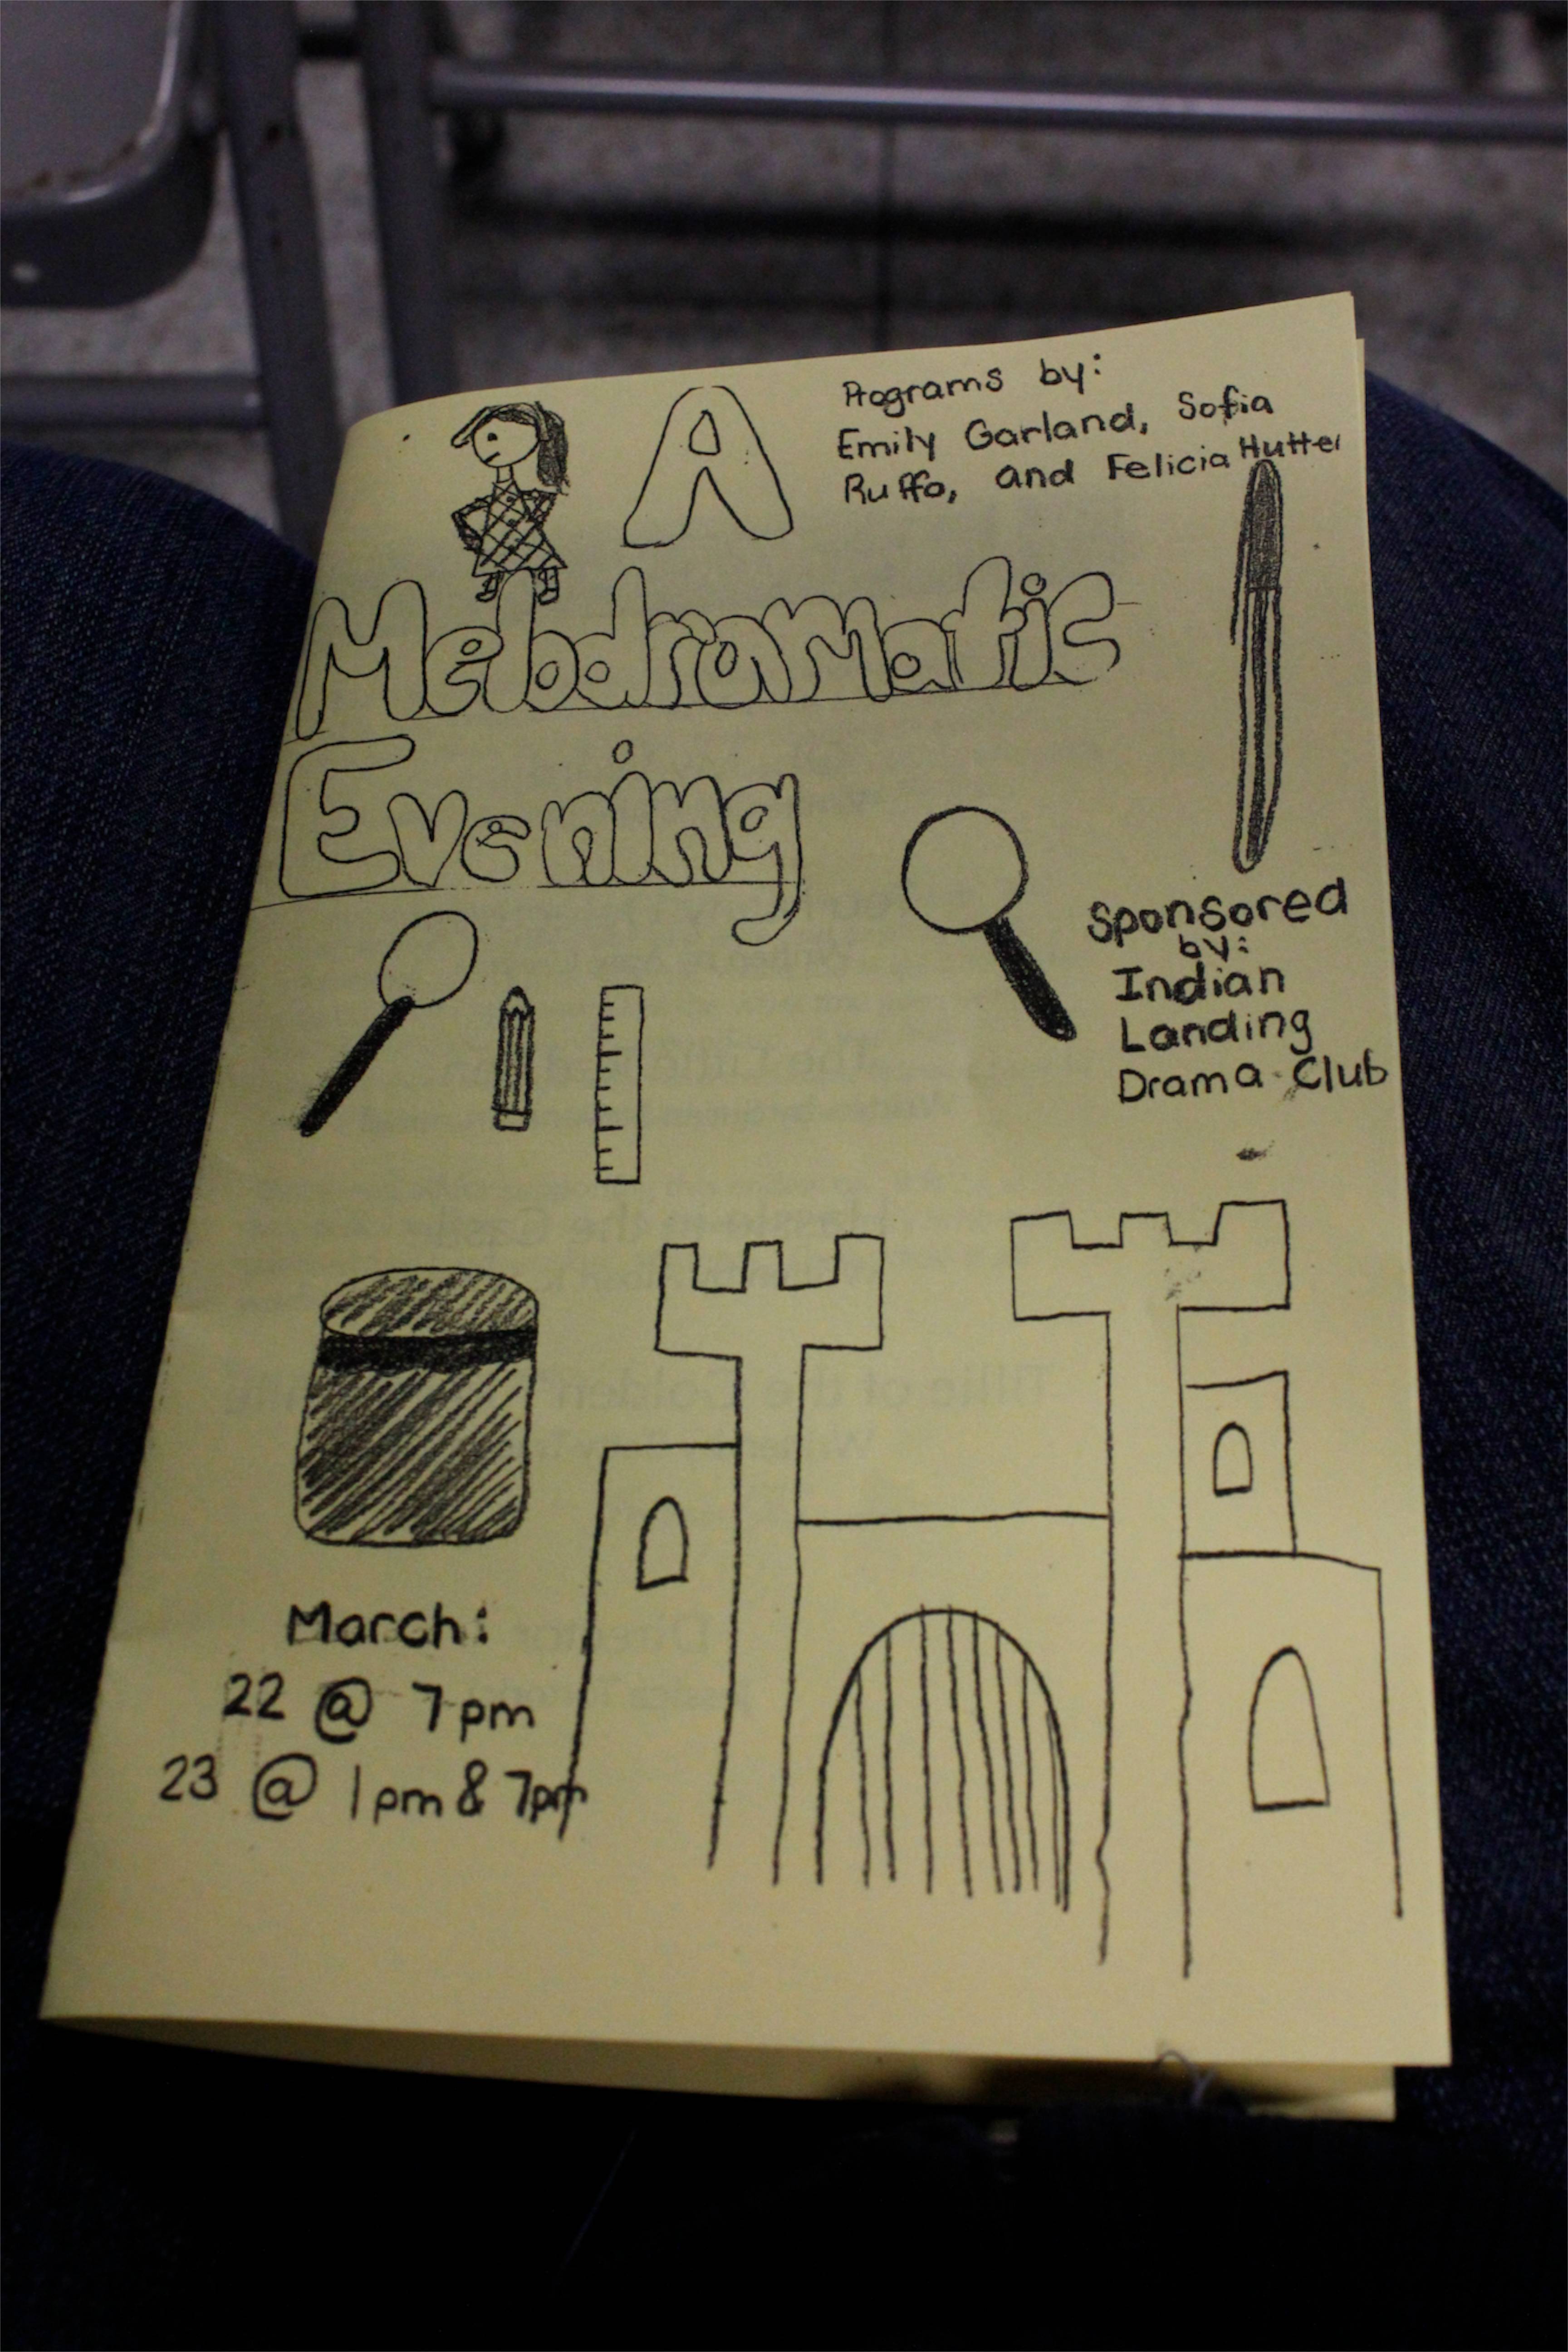 A
Programs by:
Emily Garland, Sofia
Ruffo, and Felicia Hutter
Melodramatic
Evening
Sponsored
by:
Indian
Landing
Drama Club
March:
22 @ 7pm
23 @ 1pm & 7pm